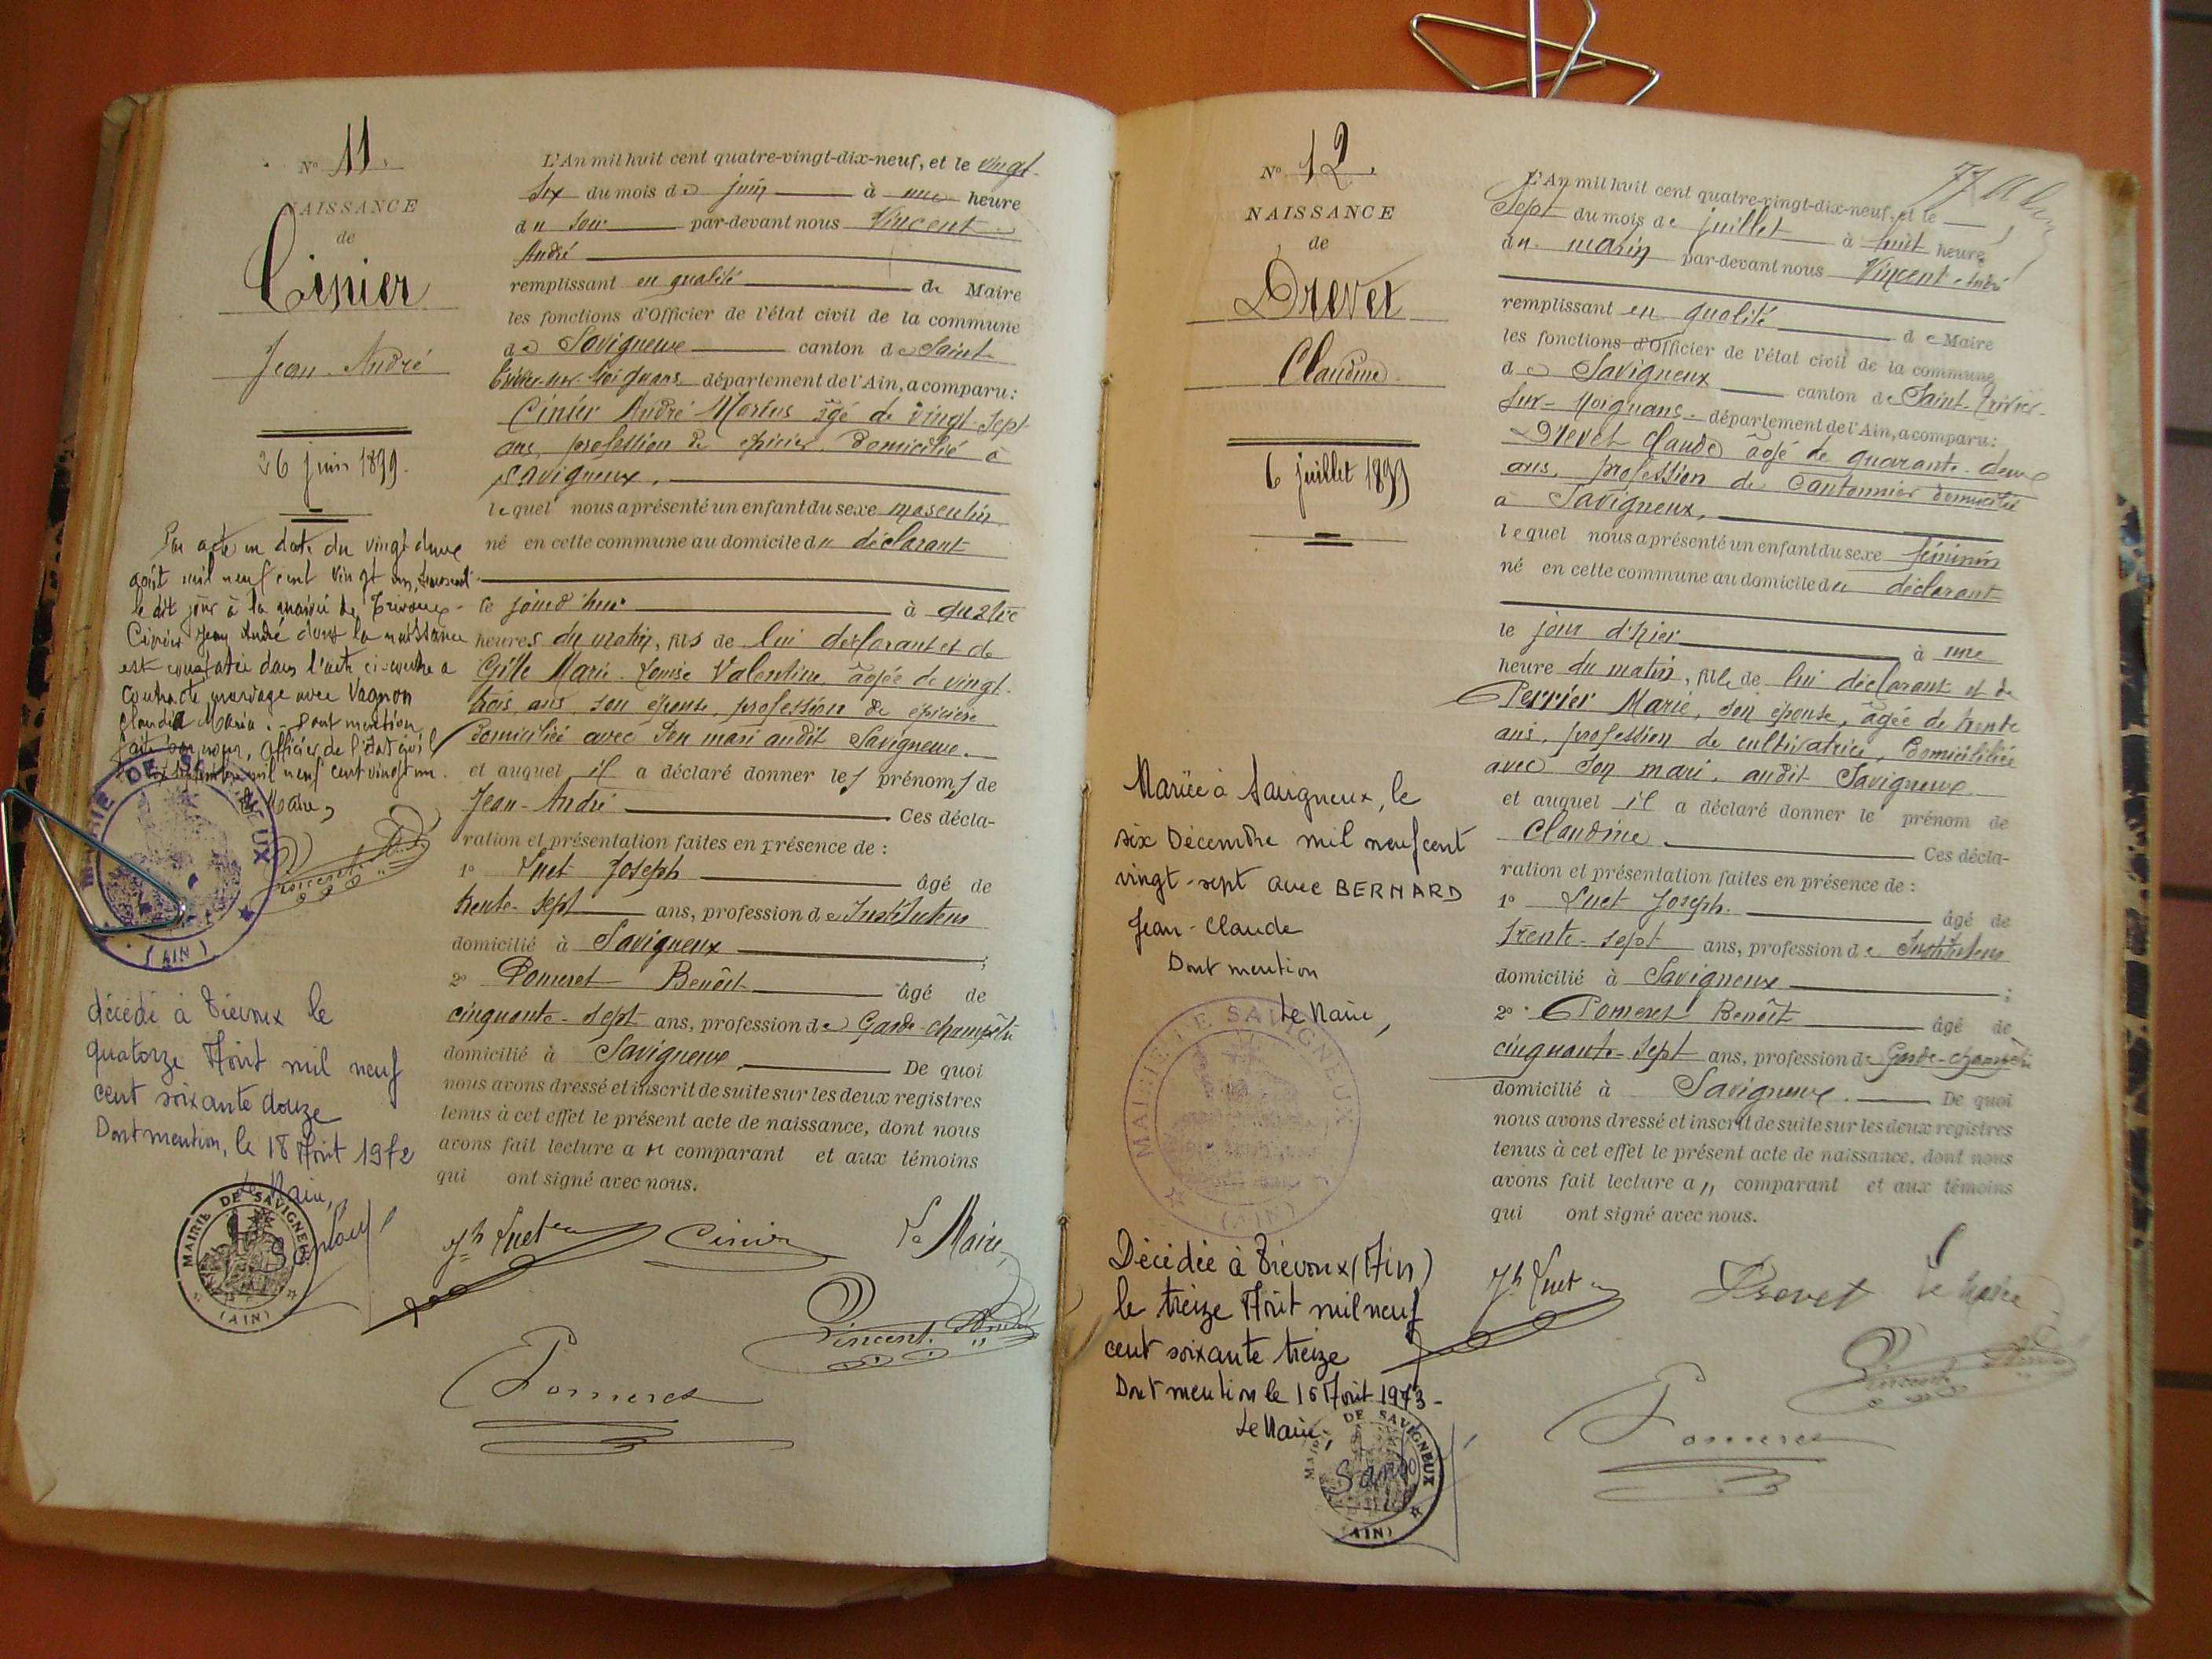 N° 11.
NAISSANCE
de
Cinier
Jean-André
26 juin 1899.
Par acte en date du vingt deux
août mil neuf cent vingt un,
le dit jour à la mairie de Trévoux
Cinier Jean André dont la naissance
est constatée dans l'acte ci-contre a
contracté mariage avec Vagnon
Claudia Maria. - Dont mention
faite par nous, Officier de l'état civil
mil neuf cent vingt un.
Le Maire,
MAIRIE DE SAVIGNEUX
(AIN)
décédé à Trévoux le
quatorze Août mil neuf
cent soixante douze
Dont mention, le 18 Août 1972
Le Maire,
MAIRIE DE SAVIGNEUX
(AIN)
L'An mil huit cent quatre-vingt-dix-neuf, et le vingt-
six du mois de juin à une heure
du soir par-devant nous Vincent
André
remplissant en qualité de Maire
les fonctions d'Officier de l'état civil de la commune
de Savigneux canton de Saint-
Trivier-sur-Moignans département de l'Ain, a comparu :
Cinier André Marius âgé de vingt-sept
ans, profession de épicier domicilié à
Savigneux,
lequel nous a présenté un enfant du sexe masculin
né en cette commune au domicile du déclarant
ce jourd'hui à quatre
heures du matin, fils de lui déclarant et de
Marie-Louise Valentine, âgée de vingt-
trois ans, son épouse, profession de épicière
domiciliée avec son mari audit Savigneux.
et auquel il a déclaré donner les prénoms de
Jean-André Ces décla-
ration et présentation faites en présence de :
1° Luet Joseph âgé de
trente-sept ans, profession de Instituteur
domicilié à Savigneux ;
2° Pomeret Benoît âgé de
cinquante-sept ans, profession de Garde-champêtre
domicilié à Savigneux, De quoi
nous avons dressé et inscrit de suite sur les deux registres
tenus à cet effet le présent acte de naissance, dont nous
avons fait lecture au comparant et aux témoins
qui ont signé avec nous.
Jh Luet Cinier Le Maire,
Vincent André
Pomeret
N° 12.
NAISSANCE
de
Drevet
Claudine
6 juillet 1899
Mariée à Savigneux, le
six Décembre mil neuf cent
vingt-sept avec BERNARD
Jean-Claude
Dont mention
Le Maire,
MAIRIE DE SAVIGNEUX
(AIN)
Décédée à Trévoux (Ain)
le treize Août mil neuf
cent soixante treize
Dont mention le 16 Août 1973-
Le Maire,
MAIRIE DE SAVIGNEUX
(AIN)
L'An mil huit cent quatre-vingt-dix-neuf, et le
Sept du mois de juillet à huit heure
du matin par-devant nous Vincent André
remplissant en qualité de Maire
les fonctions d'Officier de l'état civil de la commune
de Savigneux canton de Saint-Trivier-
sur-Moignans département de l'Ain, a comparu :
Drevet Claude âgé de quarante-deux
ans, profession de Cantonnier domicilié
à Savigneux,
lequel nous a présenté un enfant du sexe féminin
né en cette commune au domicile du déclarant
le jour d'hier à une
heure du matin, fille de lui déclarant et de
Perrier Marie, son épouse, âgée de trente
ans, profession de cultivatrice, domiciliée
avec son mari, audit Savigneux
et auquel il a déclaré donner le prénom de
Claudine Ces décla-
ration et présentation faites en présence de :
1° Luet Joseph. âgé de
trente-sept ans, profession de Instituteur
domicilié à Savigneux ;
2° Pomeret Benoît âgé de
cinquante-sept ans, profession de Garde-champêtre
domicilié à Savigneux. De quoi
nous avons dressé et inscrit de suite sur les deux registres
tenus à cet effet le présent acte de naissance, dont nous
avons fait lecture au comparant et aux témoins
qui ont signé avec nous.
Jh Luet Drevet Le Maire
Vincent André
Pomeret